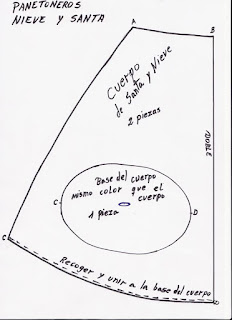 PANETONEROS
NIEVE Y SANTA
A
B
Cuerpo
de Santa y Nieve
2 piezas
DOBLE
Base del cuerpo
mismo color que el
cuerpo
C
D
1 pieza
C
Recoger y unir a la base del cuerpo
D